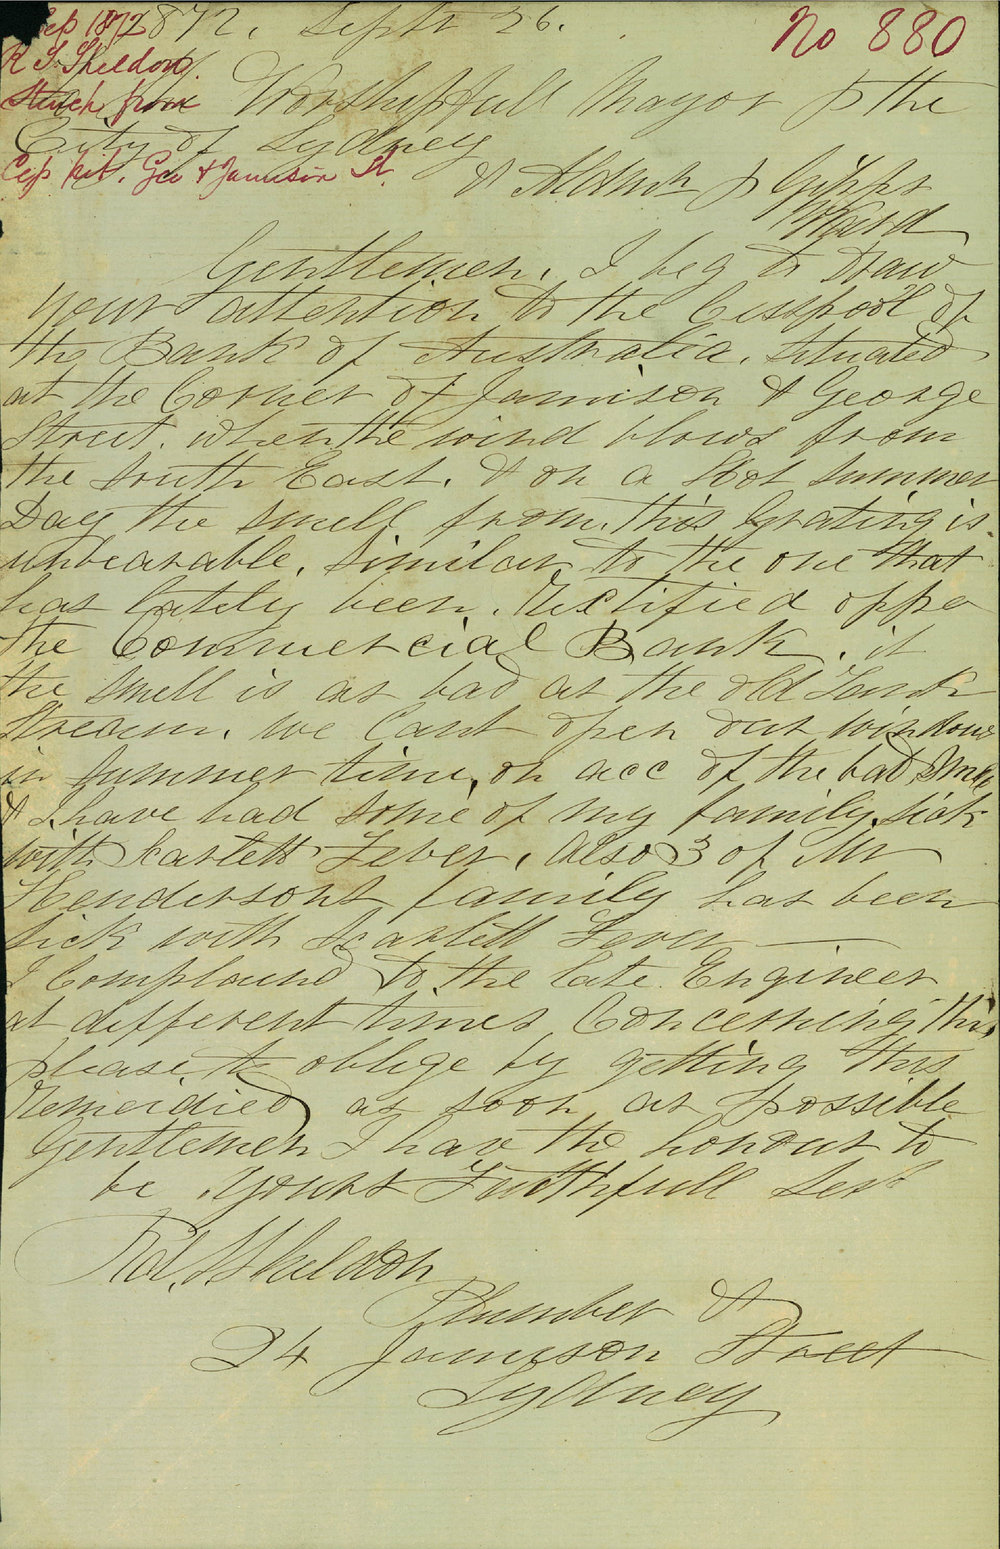 Sep 1872
R S Sheldon
Stench from
Cess pit. Geo & Jamison St.
No 880
1872. Septr 26.
Worshipfull Mayor of the
City of Sydney
& Aldmn of Gipps
Ward
Gentlemen. I beg to draw
your attention to the Cesspool of
the Bank of Australia. Situated
at the Corner of Jamison & George
Street. when the wind blows from
the South East. & on a Hot summer
Day the smell from this Grating is
unbearable. similar to the one that
has lately been. Rectified oppo
the Commercial Bank. it
the smell is as bad as the old Tank
Stream. we Cant open our windows
in summer time, on acc of the bad Smell
& I have had some of my family sick
with Scarlett Fever. Also 3 of Mr
Hendersons family has been
sick with Scarlett Fever
I Complaund to the late Engineer
at different times Concerning this
please to oblige by getting this
Remeidied as soon as possible
Gentlemen I hav the honour to
be yours Faithfull Sert
Rd. S Sheldon
Plumber &
24 Jamison Street
Sydney